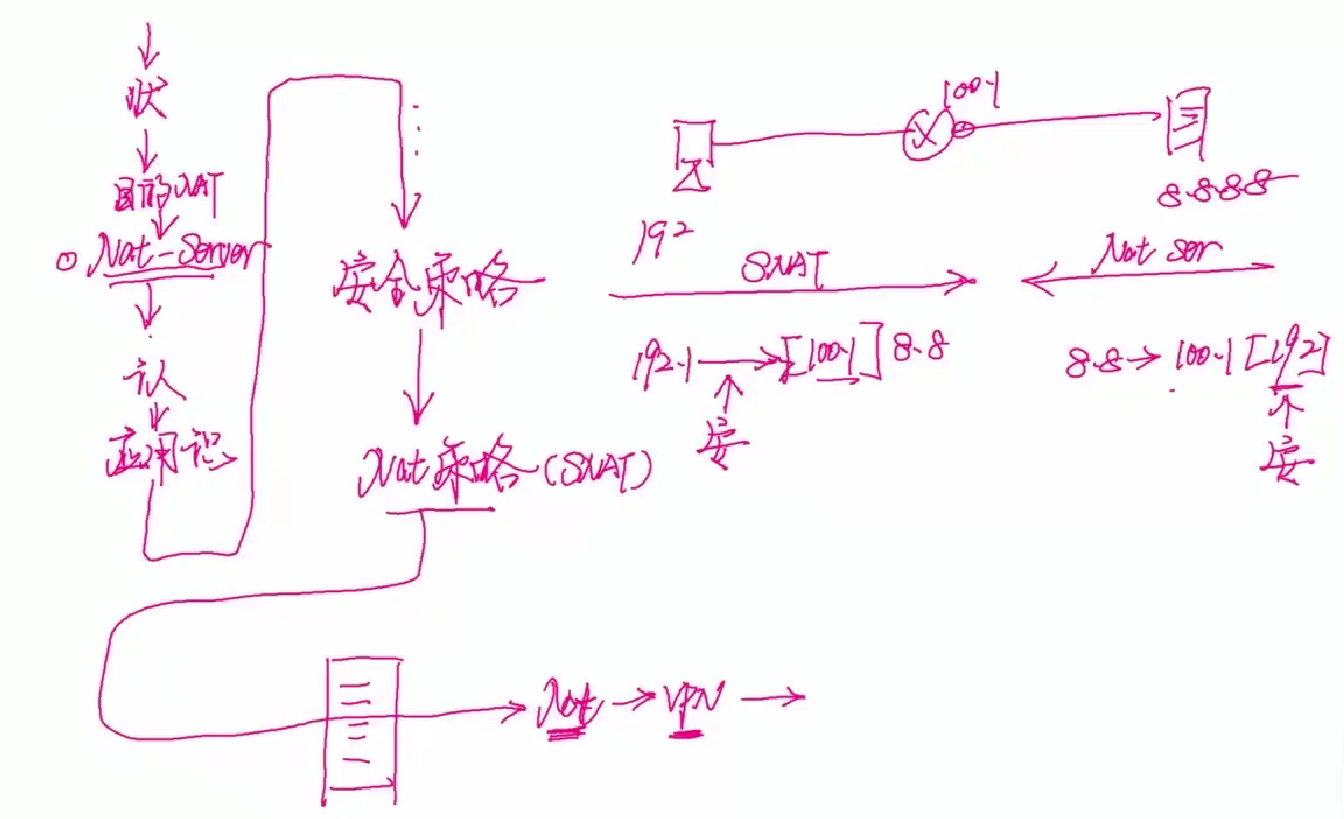 状
目的NAT
Nat-Server
认
应用识
安全策略
Nat策略(SNAT)
Nat → VPN →
100.1
8.8.8.8
192
SNAT
Nat ser
192.1 → [100.1] 8.8
安
8.8 → 100.1 [192]
安